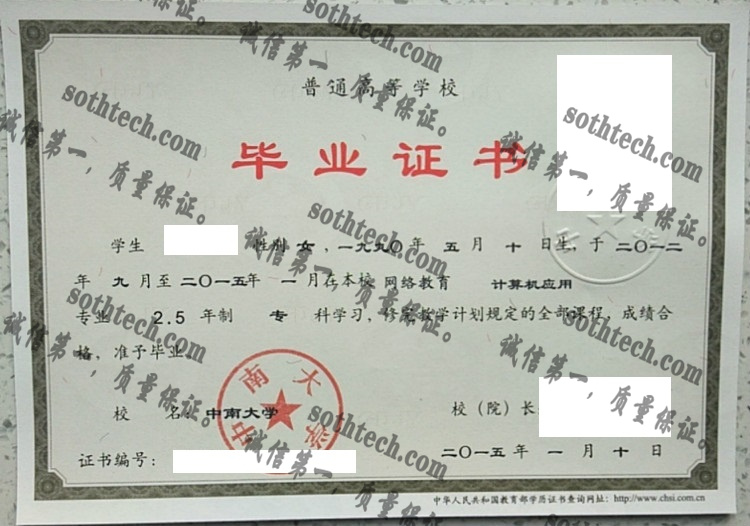 普通高等学校
毕业证书
学生 性别 女，一九九〇年 五月 十日生，于二〇一二
年 九月至二〇一五年 一月在本校 网络教育 计算机应用
专业 2.5 年制 专 科学习，修完教学计划规定的全部课程，成绩合
格，准予毕业。
校 名：中南大学 校（院）长：
证书编号： 二〇一五年 一月十日
中华人民共和国教育部学历证书查询网址：http://www.chsi.com.cn
中南大学
sothtech.com
诚信第一，质量保证。
sothtech.com
诚信第一，质量保证。
sothtech.com
诚信第一，质量保证。
sothtech.com
诚信第一，质量保证。
sothtech.com
诚信第一，质量保证。
sothtech.com
诚信第一，质量保证。
sothtech.com
诚信第一，质量保证。
sothtech.com
诚信第一，质量保证。